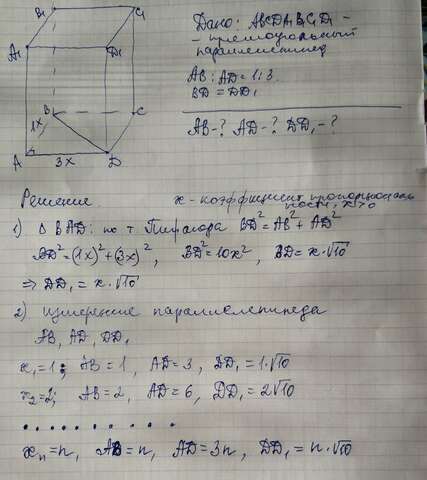 B₁ C₁
A₁ D₁
B C
1x
A 3x D
Дано: ABCDA₁B₁C₁D₁ -
- прямоугольный
параллелепипед
AB : AD = 1 : 3
BD = DD₁
AB - ? AD - ? DD₁ - ?
Решение x - коэффициент пропорциональ
ности, x>0
1) Δ BAD: по т Пифагора BD² = AB² + AD²
BD² = (1x)² + (3x)², BD² = 10x², BD = x·√10
⇒ DD₁ = x·√10
2) измерение параллелепипеда
AB, AD, DD₁
x₁ = 1; AB = 1, AD = 3, DD₁ = 1·√10
x₂ = 2; AB = 2, AD = 6, DD₁ = 2√10
. . . . . . . . . .
xₙ = n, AB = n, AD = 3n, DD₁ = n·√10